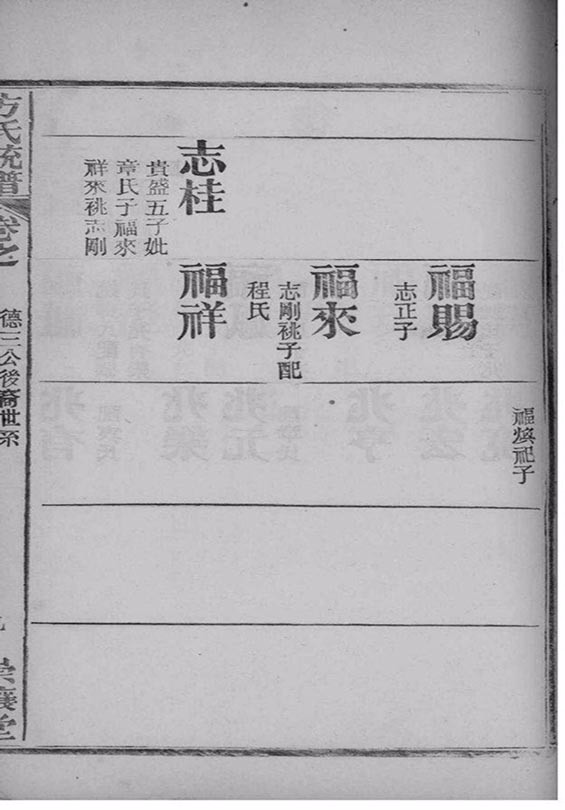 福煥祀子
福賜
志正子
福來
志剛祧子配
程氏
志桂
福祥
貴盛五子妣
章氏子福來
祥來祧志剛
方氏統譜
卷之
德三公後裔世系
崇禳堂